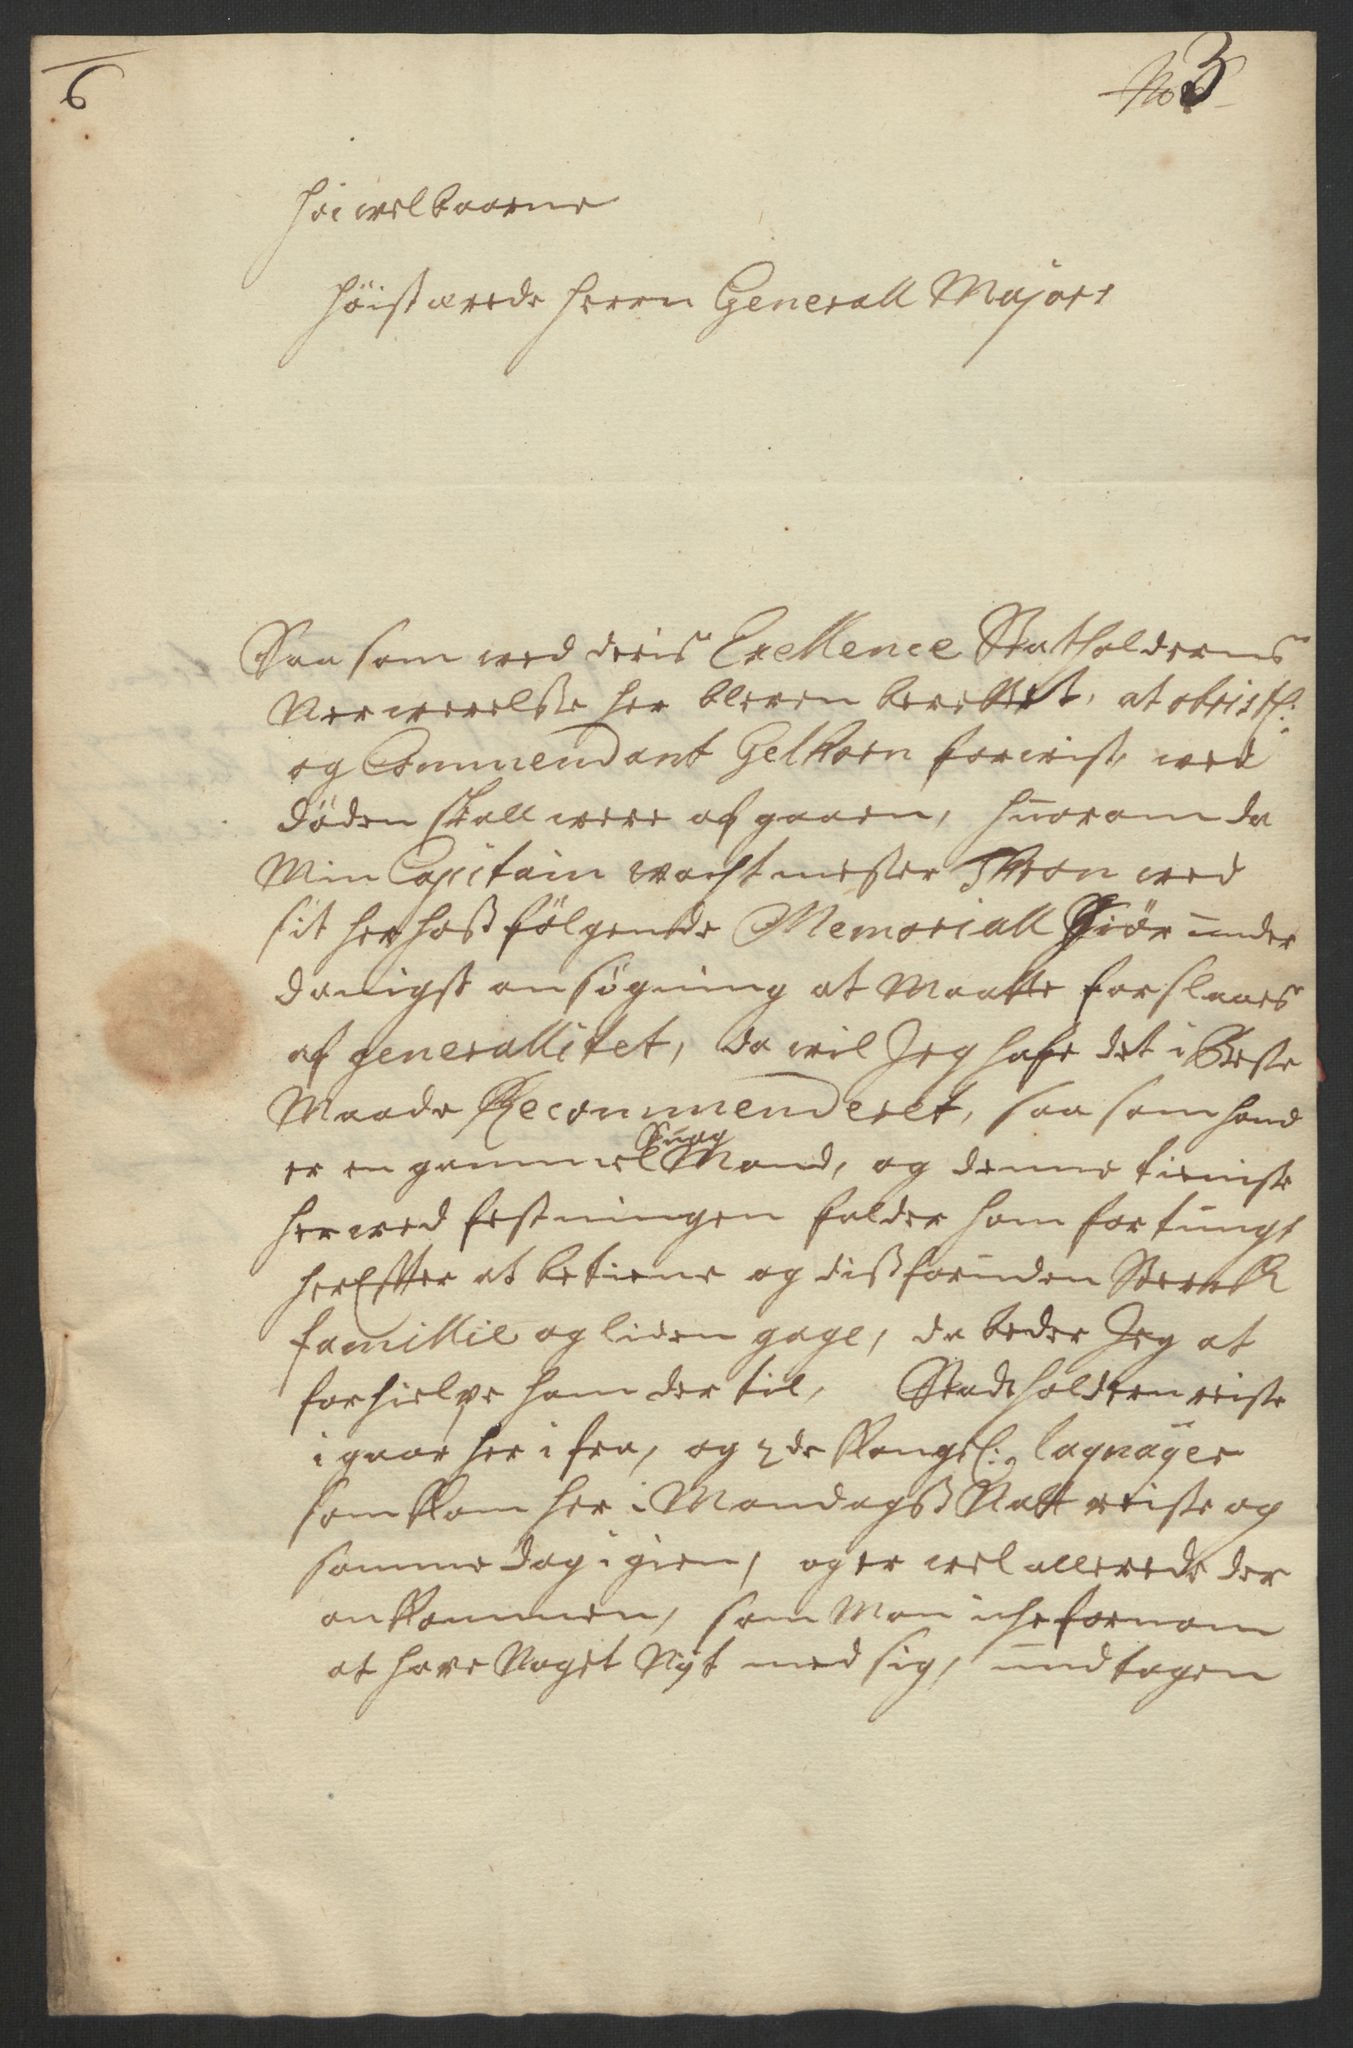 6
No 3
Høiwelbaarne
Høistærede Herrn Generall Major
Saa som wed deris Exellence Statholderens
Nerwerelsse her bleven berettet, at obristl:
og Commendant Gelkorn forwist, wed
døden skall were af gaaen, huorom da
Min Capitain wachtmester Thron wed
sit her hoss følgende Memoriall Giør under
danigst ansøgning at Maatte forslaaes
af generallitet, da wil Jeg hafe det i Beste
Maade Recommenderet, saa som hand
er en gammel Suag Mand, og denne tieniste
her wed festningen falder ham for tungt
her Efter at betiene og diss foruden Sterck
famillie og liden gage, da beder Jeg at
forhielpe ham der til, Stadtholderen reiste
i gaar her i fra, og 2de Kongel: laqvayer
som kom her i Mandagss Natt reiste og
samme dag i gien, og er wel allerede der
ankommen, som Man iche fornam
at have Noget Nyt med sig, undtagen